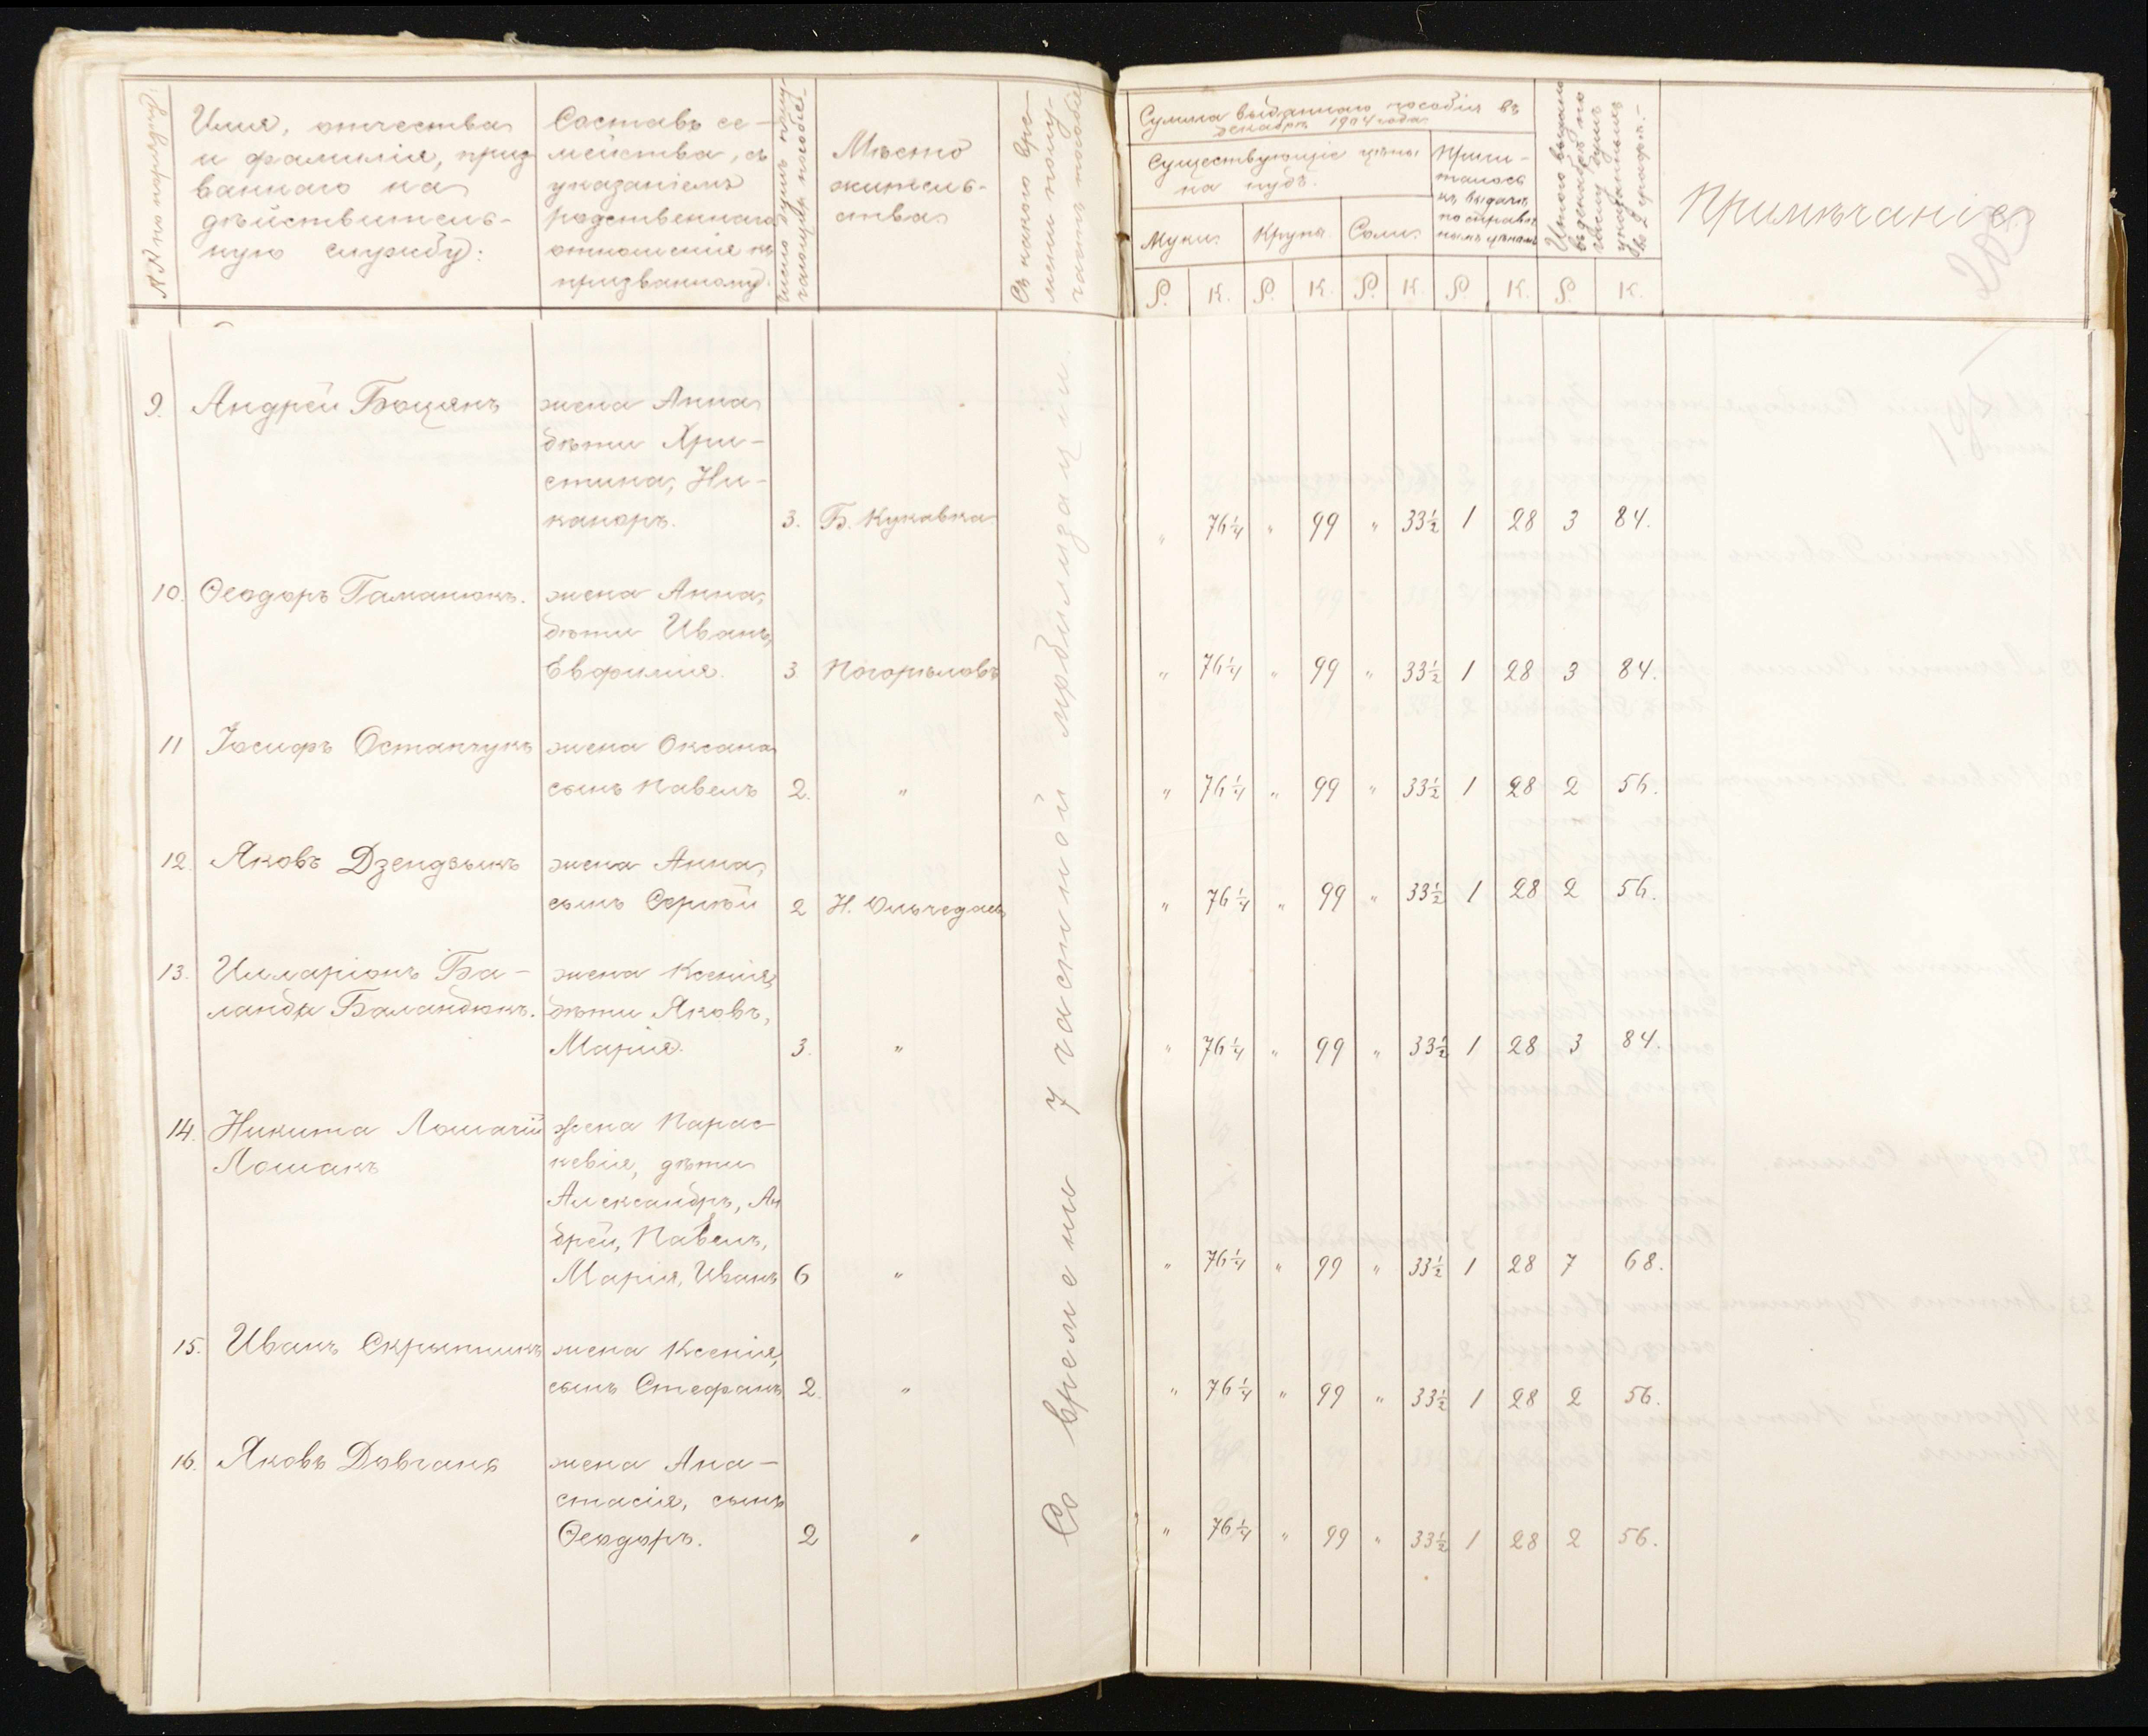 №№ по порядку.
Имя, отчество
и фамилія, приз-
ваннаго на
дѣйствитель-
ную службу:
Составъ се-
мейства, съ
указаніемъ
родственнаго
отношенія къ
призванному.
Число душъ полу-
чающихъ пособіе.
Мѣсто
житель-
ства
Съ какого вре-
мени полу-
чаетъ пособіе
Сумма выданнаго пособія въ
декабрѣ 1904 года
Существующіе цѣны
на пудъ.
Муки.
Крупы
Соли.
Причи-
талось
къ выдачѣ
по справоч-
нымъ цѣнамъ
Итого выдано
въ декабрѣ по
числу душъ
указанныхъ
въ 2 графѣ.
Р. К. Р. К. Р. К. Р. К. Р. К.
Примѣчаніе
9. Андрей Боцянъ жена Анна
дѣти Хри-
стина, Ни-
каноръ. 3. Б. Кукавка " 76 1/4 " 99 " 33 1/2 1 28 3 84.
10. Ѳеодоръ Гаманюкъ. жена Анна,
дѣти Иванъ,
Евфимія. 3 Погорѣловъ " 76 1/4 " 99 " 33 1/2 1 28 3 84.
11 Іосифъ Остапчукъ жена Оксана
сынъ Павелъ 2. " " 76 1/4 " 99 " 33 1/2 1 28 2 56.
12. Яковъ Дзендзыкъ жена Анна,
сынъ Сергѣй 2 Н. Ольчедаевъ " 76 1/4 " 99 " 33 1/2 1 28 2 56.
13. Илларіонъ Ба-
ланда Баландюкъ. жена Ксенія,
дѣти Яковъ,
Марія. 3. " " 76 1/4 " 99 " 33 1/2 1 28 3 84.
14. Никита
Лошакъ жена Парас-
кевія, дѣти
Александръ, Ан
дрей, Павелъ,
Марія, Иванъ 6 " " 76 1/4 " 99 " 33 1/2 1 28 7 68.
15. Иванъ Скрыпникъ жена Ксенія,
сынъ Стефанъ 2. " " 76 1/4 " 99 " 33 1/2 1 28 2 56.
16. Яковъ Довгань жена Ана-
стасія, сынъ
Ѳеодоръ. 2 " " 76 1/4 " 99 " 33 1/2 1 28 2 56.
Со времени 7 частной мобилизаціи